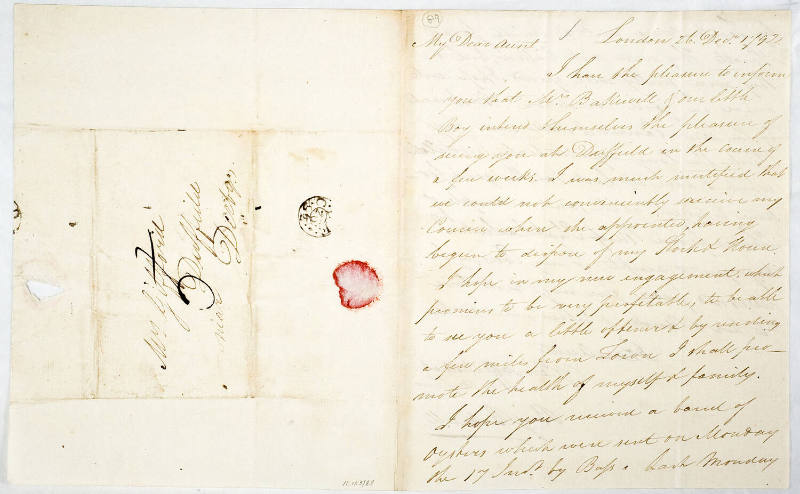 Mrs Gifford
Duffield
near Derby.
89
1
London 26 Decr. 1792
My Dear Aunt.
I have the pleasure to inform
you that Mrs. Bakewell & our little
Boy intend themselves the pleasure of
seeing you at Duffield in the course of
a few weeks. I was much mortified that
we could not conveniently receive my
Cousin when she appointed, having
begun to dispose of my Stock & House.
I hope in my new engagement, which
promises to be very profitable, to be able
to see you a little oftener & by residing
a few miles from Town I shall pro-
mote the health of myself & family.
I hope you received a barrel of
Oysters which were sent on Monday
the 17 Inst. by Bass. Last Monday